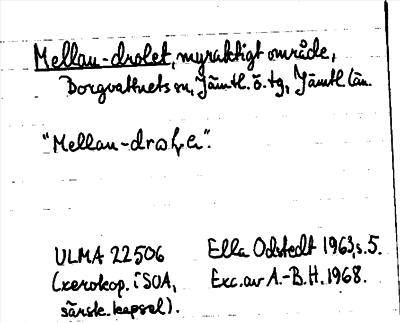 Mellan-drolet, myraktigt område,
Borgvattnets sn, Jämtl. ö. tg, Jämtl. län.
"Mellan-drol
ULMA 22506 Ella Odstedt 1963, s. 5.
(xerokop. i SOA, Exc. av A.-B.H. 1968.
särsk. kapsel).